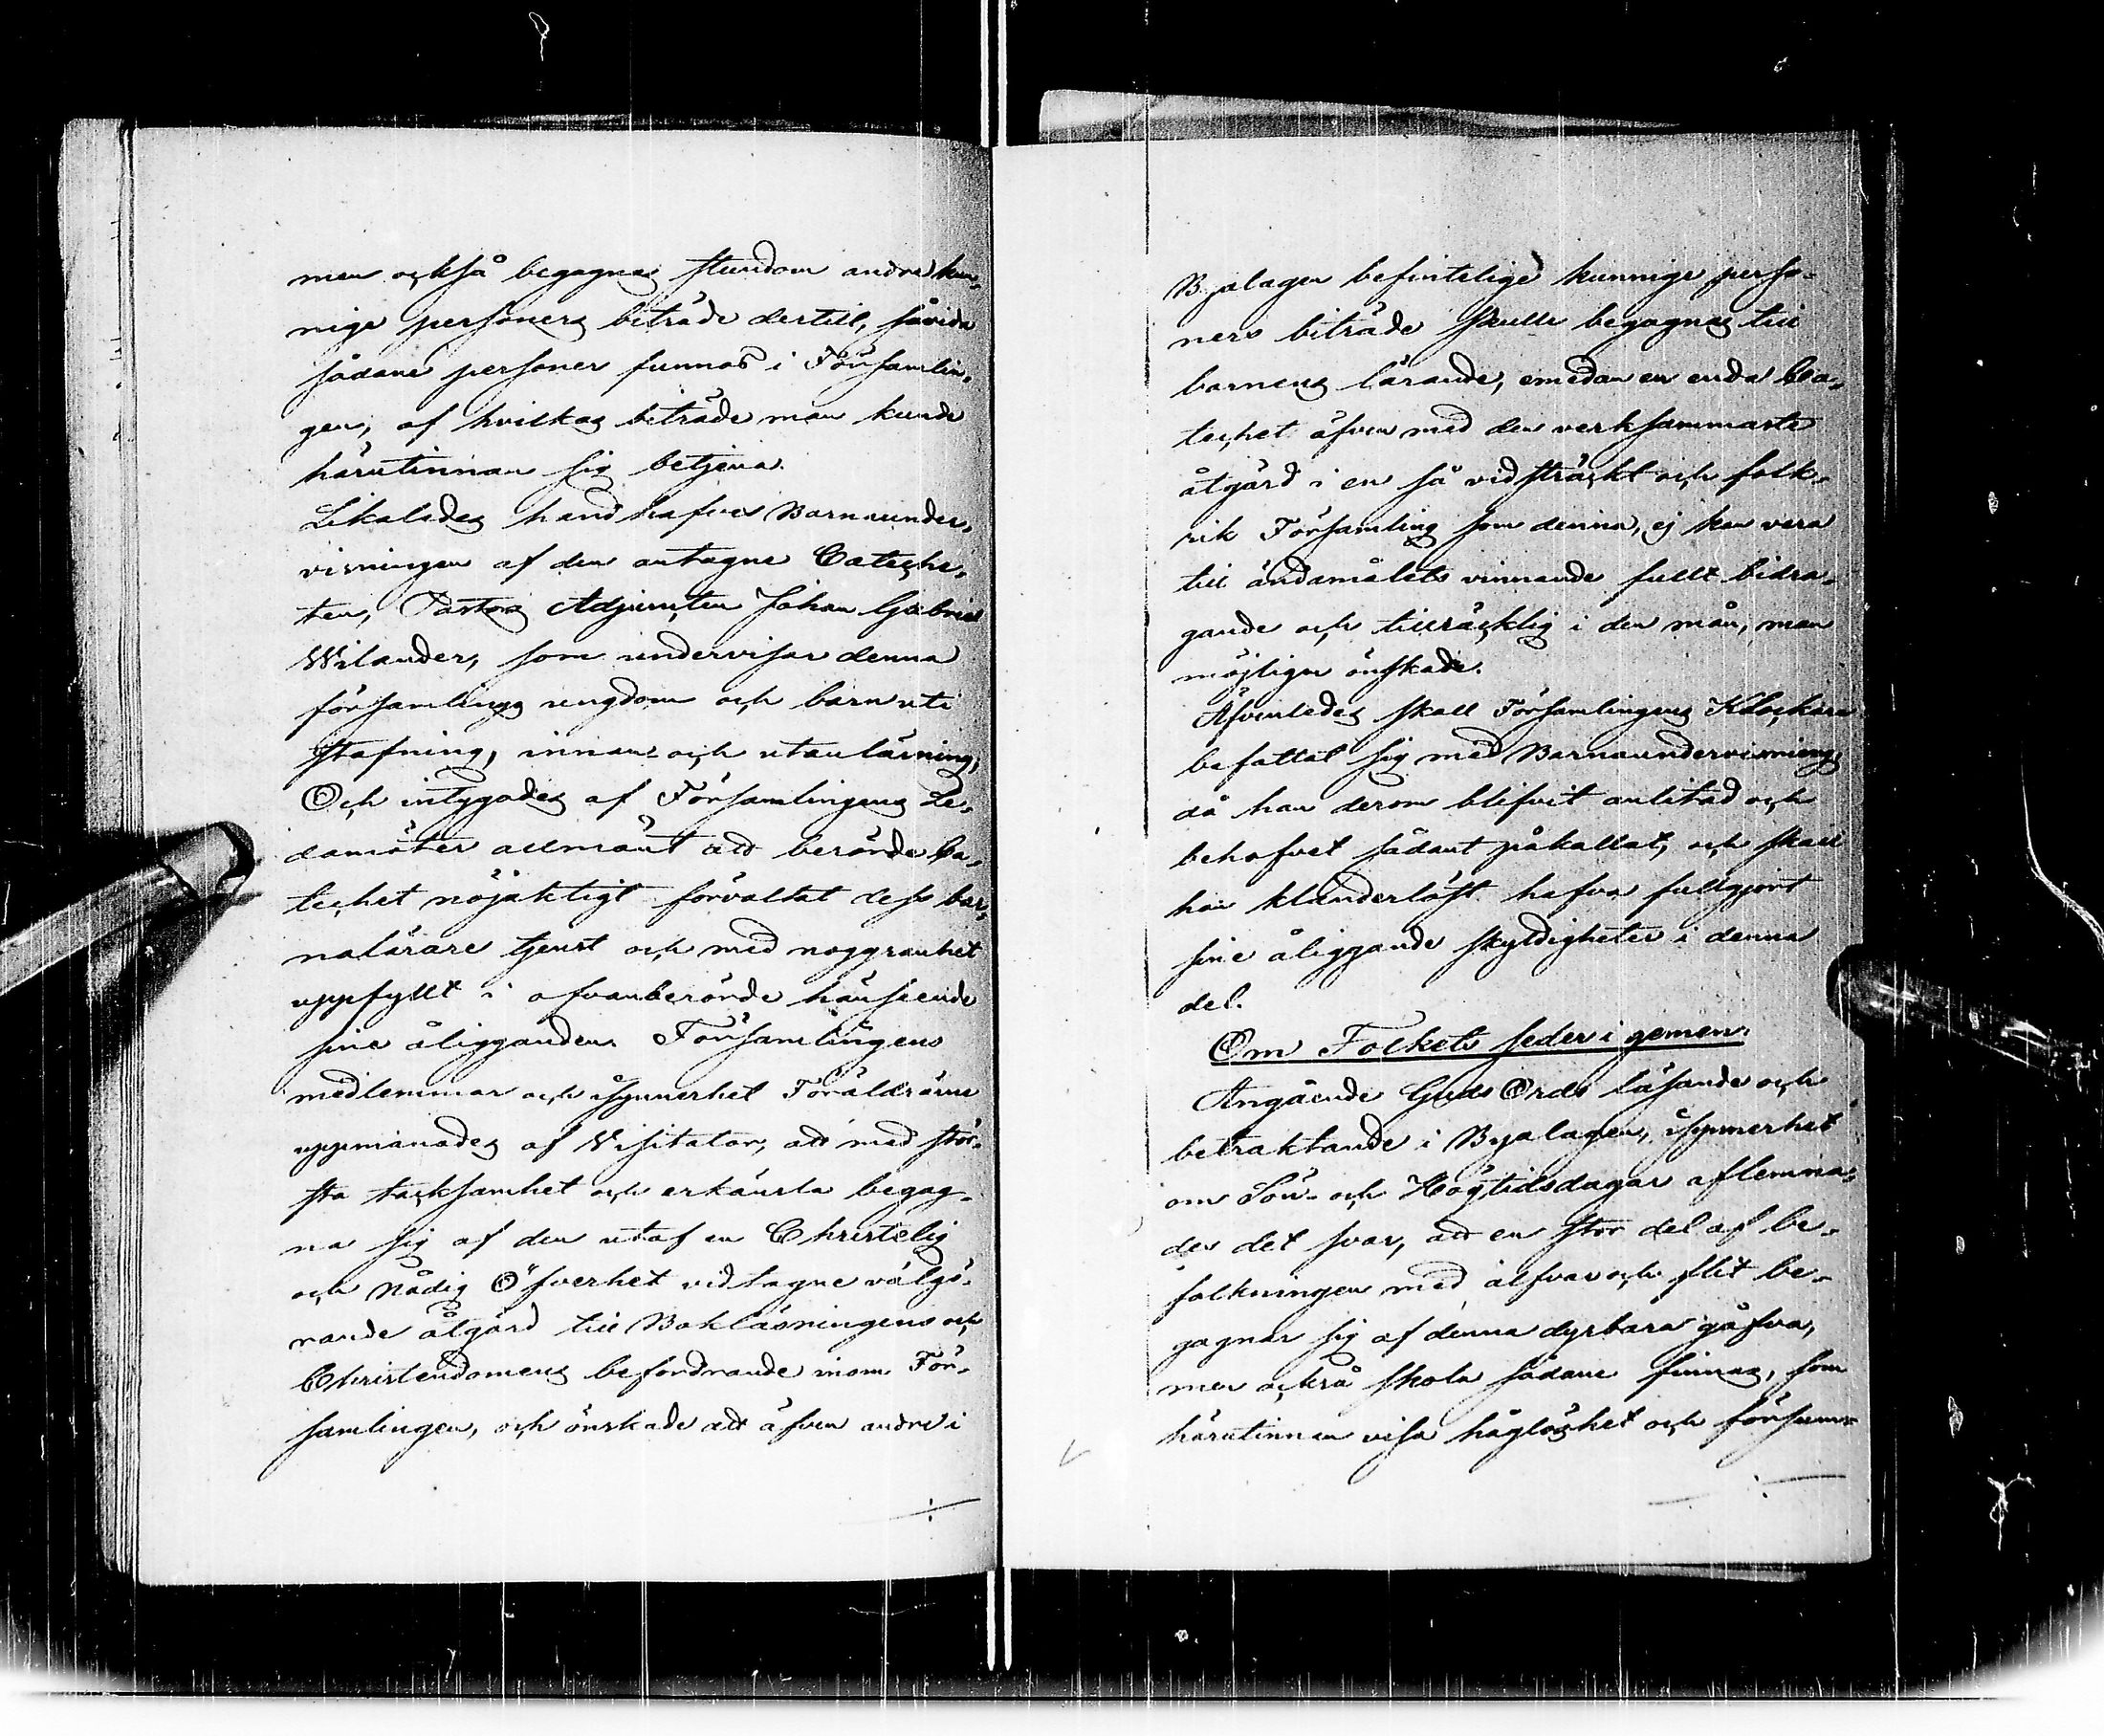 men också begagnas stundom andra kun-
nige personers biträde dertill, såvida
sådane personer funnos i Församlin-
gen, af hvilkas biträde man kunde
härutinnan sig betjena.
Likaledes handhafves Barnaunder-
visningen af den antagne Cateche-
ten, Pastors Adjuncten Johan Gabriel
Wilander, som undervisar denna
församlings ungdom och barn uti
stafning, innan- och utanläsning,
Och intygades af Församlingens Le-
damöter allmänt att berörde Ca-
techet nöjaktigt förvaltat dess bar-
nalärare tjenst och med noggranhet
uppfyllt i ofvanberörde hänseende
sine åligganden. Församlingens
medlemmar och isynnerhet Föräldrarne
uppmanades af Visitator, att med stör-
sta tacksamhet och erkänsla begag-
na sig af den utaf en Christelig
och Nådig Öfverhet vidtagne välgö-
rande åtgärd till Bokläsningens och
Christendomens befordrande inom För-
samlingen, och önskade att äfven andre i
Byalagen befintelige kunnige perso-
ners biträde skulle begagnas till
barnens lärande, emedan en enda Ca-
techet äfven med den verksammaste
åtgärd i en så vidsträckt och folk-
rik Församling som denna, ej kan vara
till ändamålets vinnande fullt bidra-
gande och tillräcklig i den mån, man
möjligen önskade.
Äfvenledes skall Församlingens Klockare
befattat sig med Barnaundervisning,
då han derom blifvit anlitad och
behofvet sådant påkallat, och skall
han klanderlöst hafva fullgjort
sine åliggande skyldigheter i denna
del.
Om Folkets seder i gemen.
Angående Guds Ords läsande och
betraktande i Byalagen, isynnerhet
om Sön- och Högtidsdagar aflemna-
des det svar, att en stor del af be-
folkningen med alfvar och flit be-
gagnar sig af denna dyrbara gåfva,
men också skola sådane finnas, som
härutinnan visa håglöshet och försum-